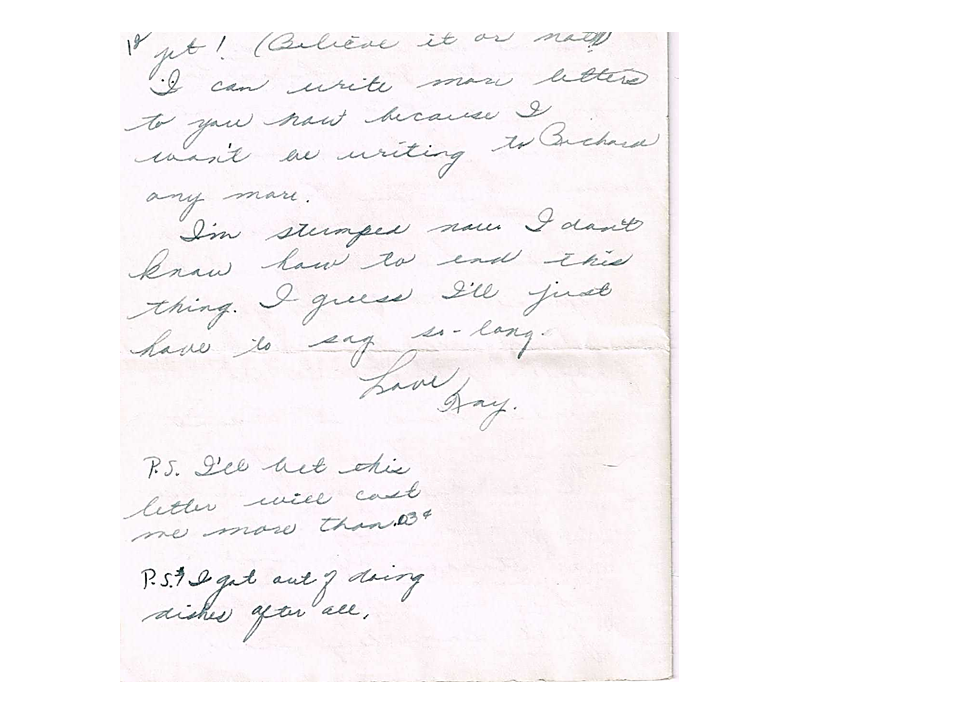 yet! (Believe it or not!)
I can write more letters
to you now because I
won't be writing to Barbara
any more.
I'm stumped now I don't
know how to end this
thing. I guess I'll just
have to say so-long.
Love
Kay.
P.S. I'll bet this
letter will cost
me more than .03¢
P.S. I got out of doing
dishes after all.